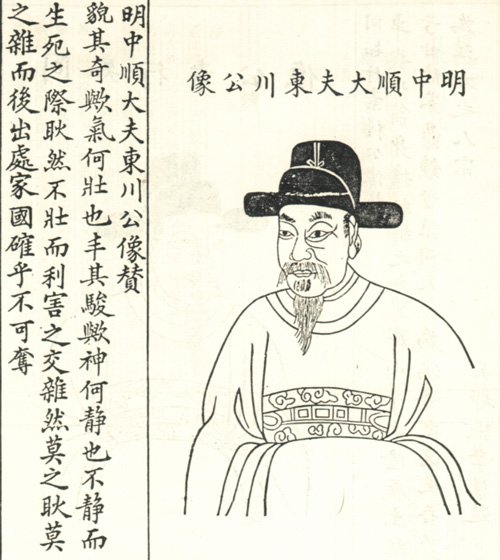 明中順大夫東川公像
明中順大夫東川公像賛
貌其奇歟氣何壯也丰其駿歟神何静也不静而
生死之際耿然不壯而利害之交雜然莫之耿莫
之雜而後出處家國確乎不可奪